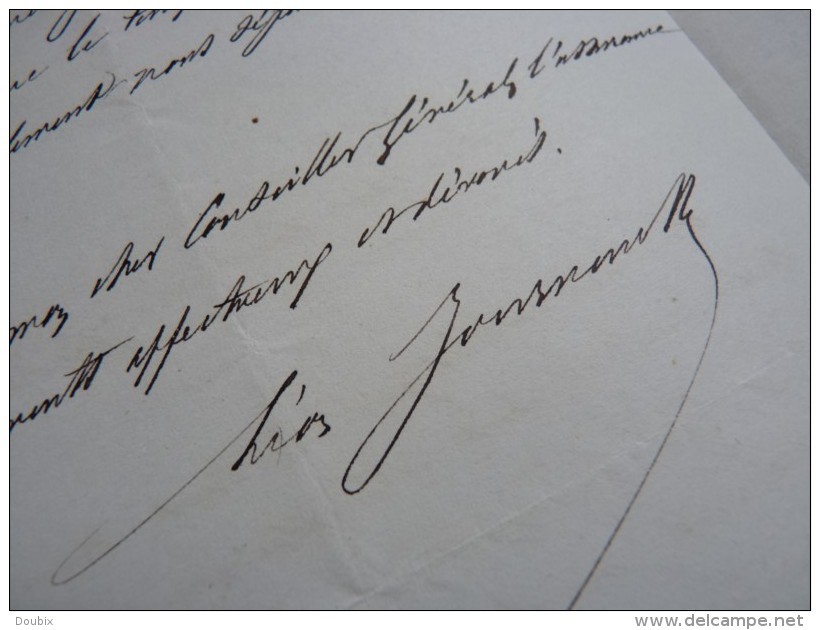 le
lement nous
mon cher Conseiller Général, l'assurance
ments affectueux et dévoués.
Léon Journault
Doubix
www.delcampe.net